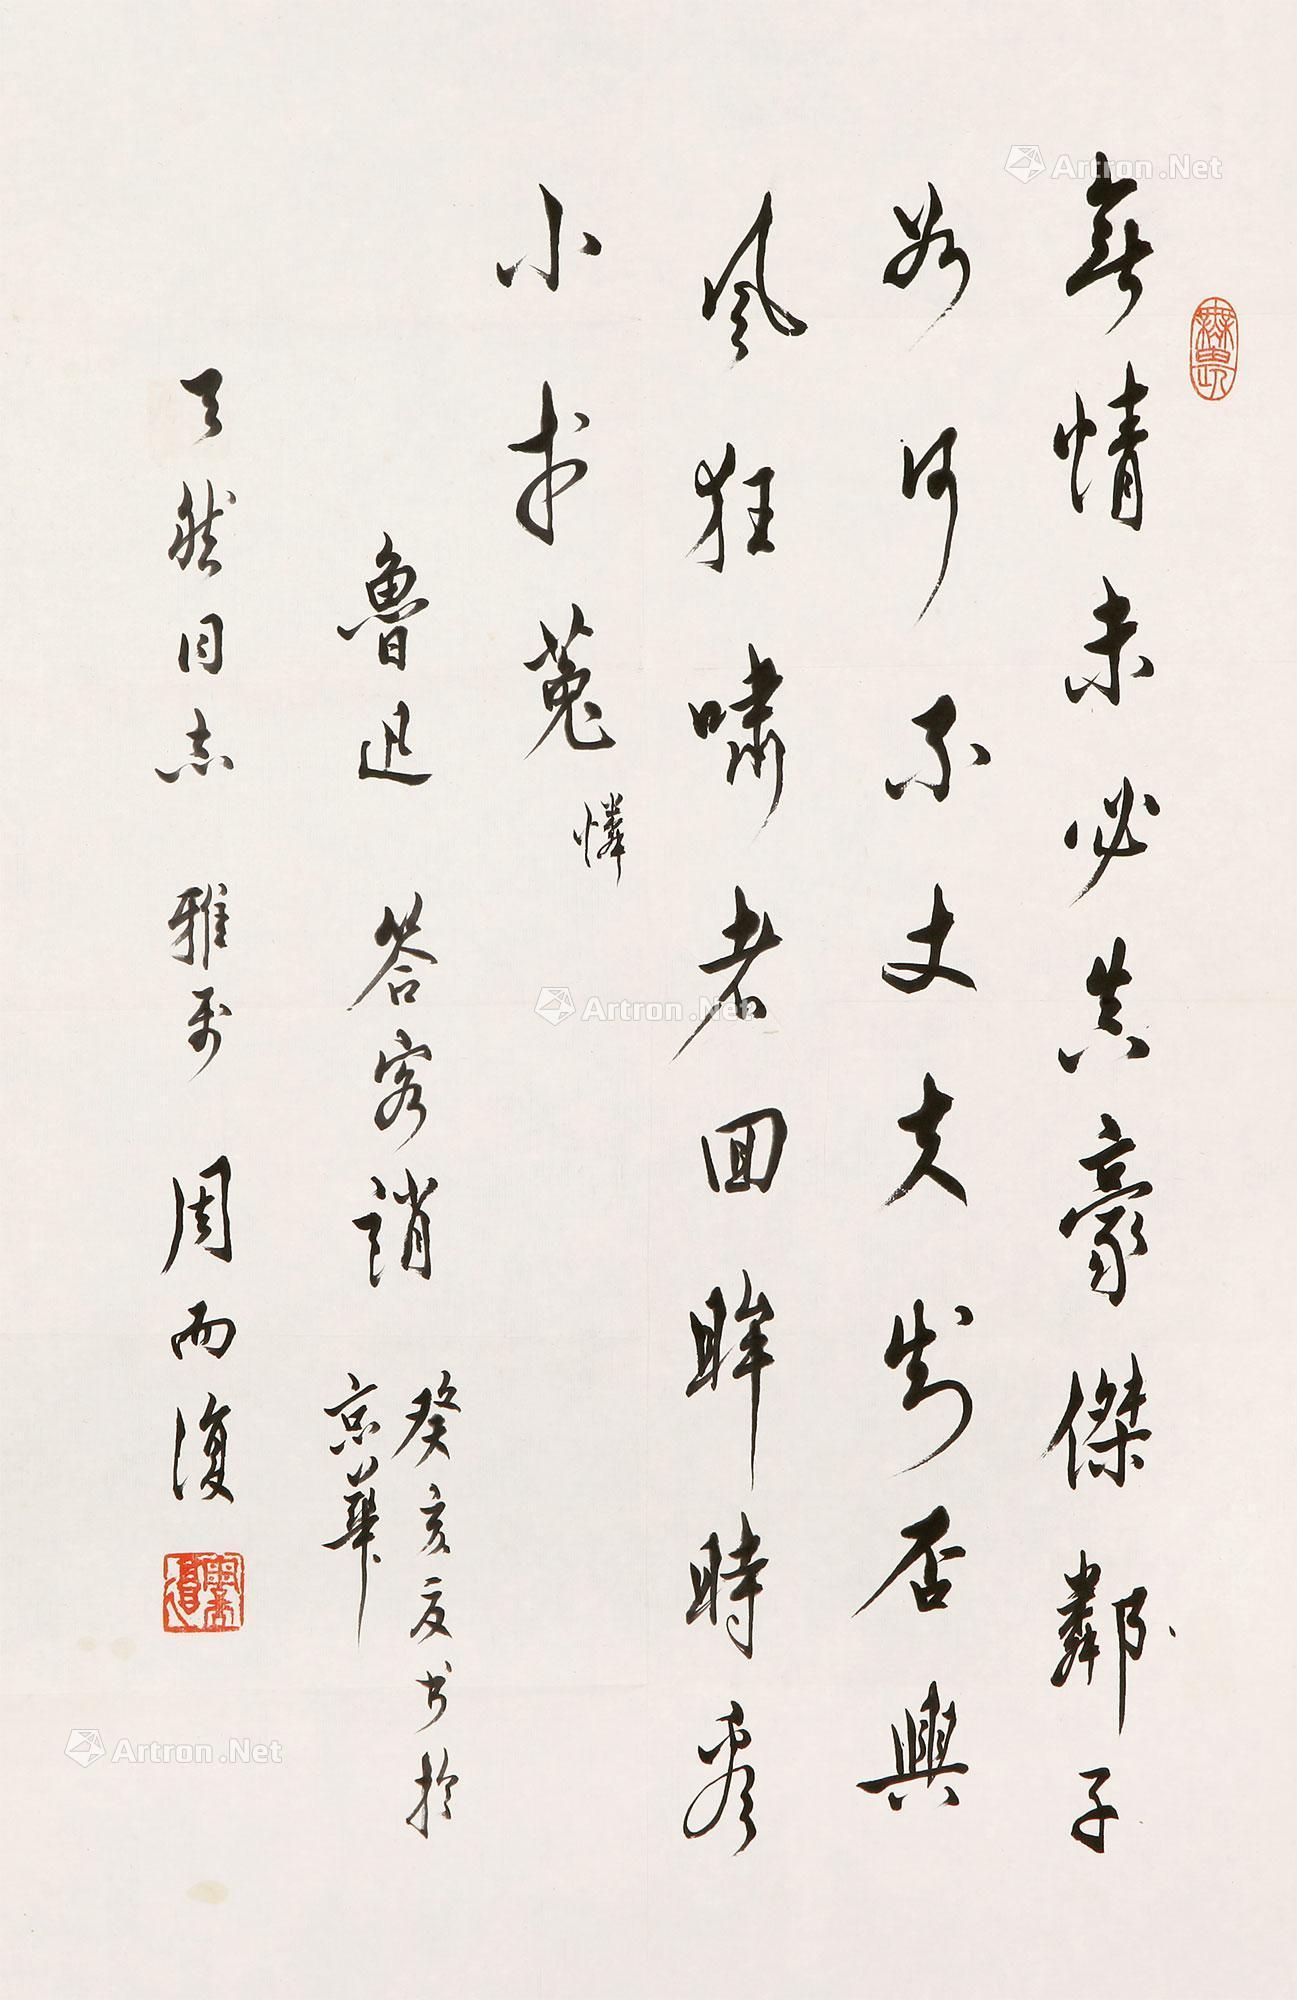 無情未必真豪傑鄰子
如何不丈夫知否興
風狂嘯者回眸時看
小於菟
憐
魯迅 答客誚
癸亥夏书於
京華
了然同志 雅正 周而復
Artron.Net
Artron.Net
Artron.Net